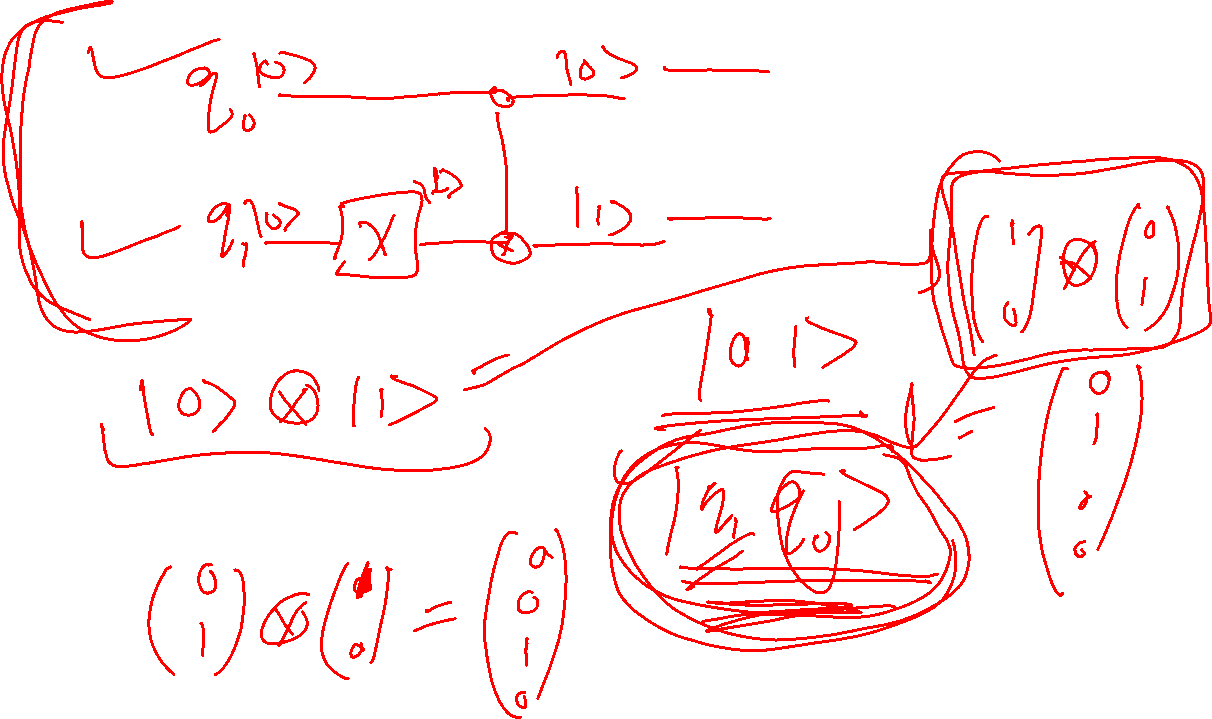 q₀ |0⟩ |0⟩
q₁ |0⟩ X |1⟩ |1⟩
(1 0) ⊗ (0 1)
|0 1⟩
|0⟩ ⊗ |1⟩ =
= (0 1 0 0)
|q₁ q₀⟩
(0 1) ⊗ (1 0) = (0 0 1 0)